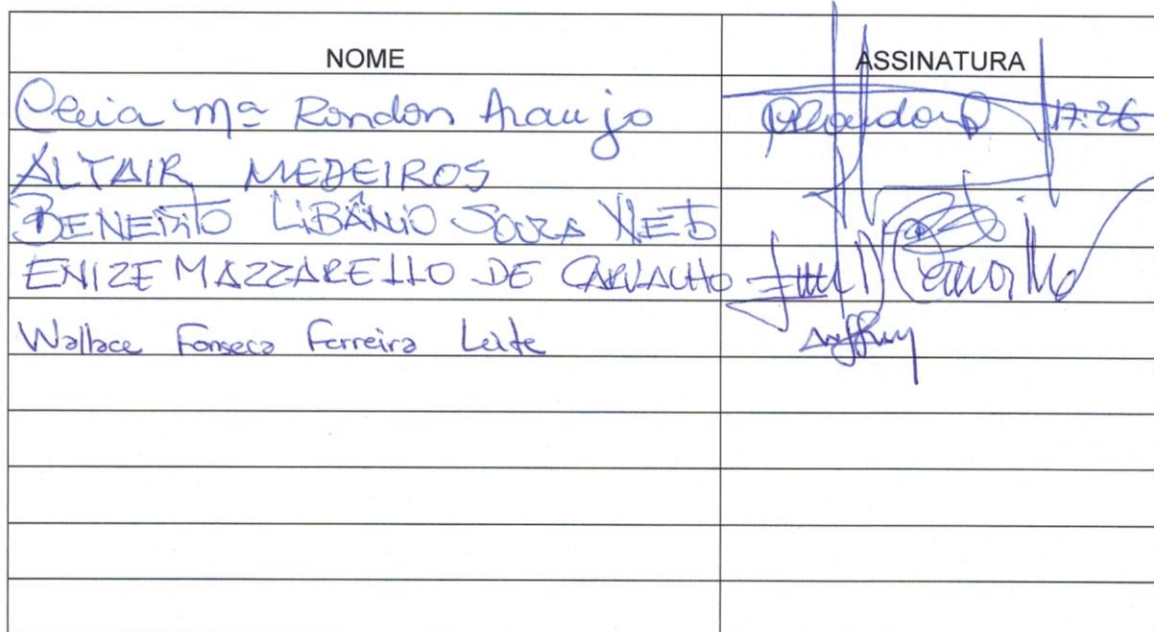 NOME ASSINATURA
Cleia Mª Rondon Araujo 17:26
ALTAIR MEDEIROS
BENEDITO LIBÂNIO SOUZA NETO
ENIZE MAZZARELLO DE CARVALHO Carvalho
Wallace Fonseca Ferreira Leite